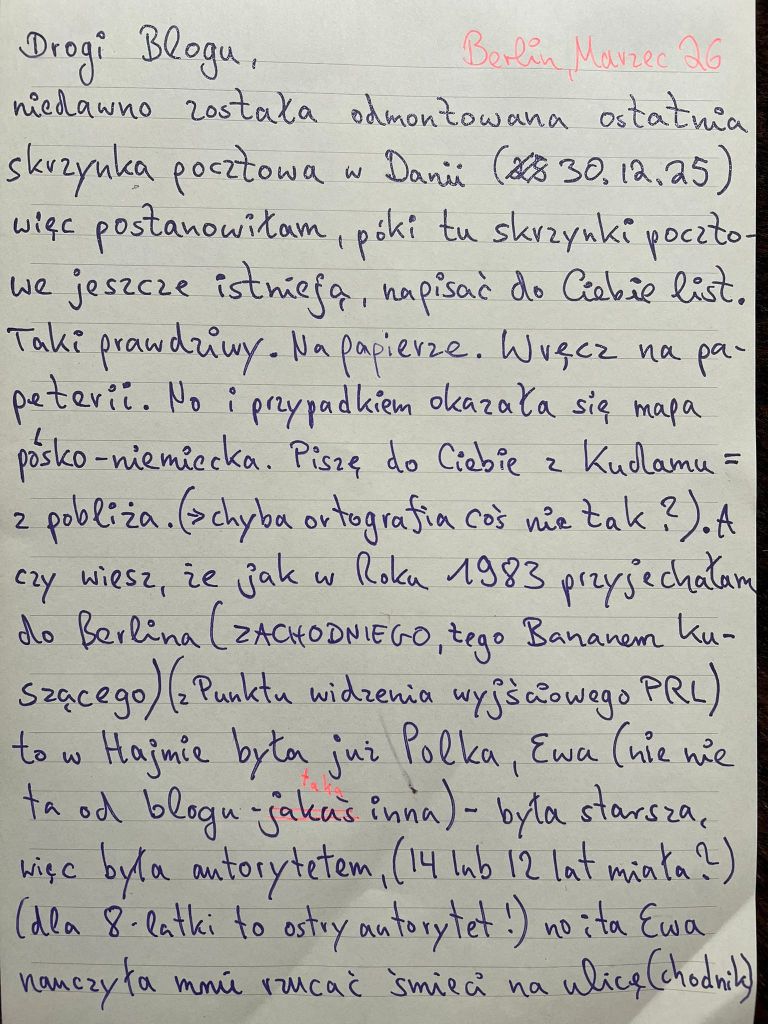 Drogi Blogu, Berlin, Marzec 26
niedawno została odmontowana ostatnia
skrzynka pocztowa w Danii (30.12.25)
więc postanowiłam, póki tu skrzynki poczto-
we jeszcze istnieją, napisać do Ciebie list.
Taki prawdziwy. Na papierze. Wręcz na pa-
peterii. No i przypadkiem okazała się mapa
polsko-niemiecka. Piszę do Ciebie z Kudamu =
z pobliża. (→ chyba ortografia coś nie tak?). A
czy wiesz, że jak w Roku 1983 przyjechałam
do Berlina (ZACHODNIEGO, tego Bananem Ku-
szącego) (z Punktu widzenia wyjściowego PRL)
to w Hajmie była już Polka, Ewa (nie nie
ta od blogu - jakaś taka inna) - była starsza,
więc była autorytetem, (14 lub 12 lat miała?)
(dla 8-latki to ostry autorytet!) no i ta Ewa
nauczyła mnie rzucać śmieci na ulicę (chodnik)